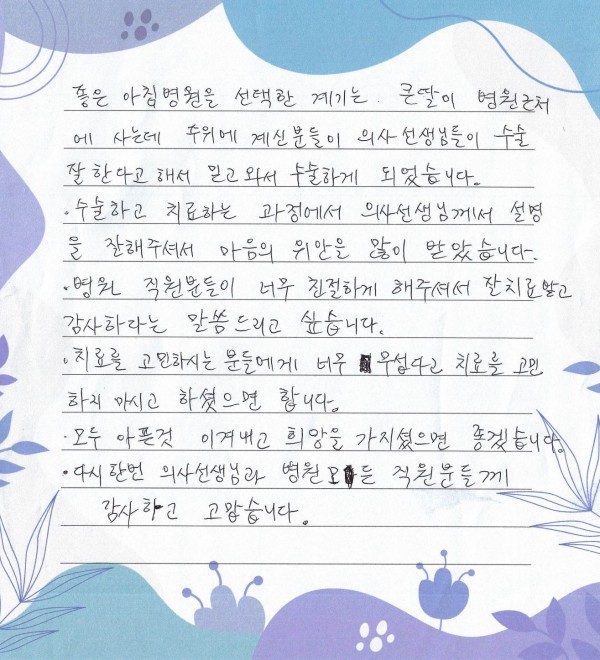 좋은 아침병원을 선택한 계기는. 큰딸이 병원근처
에 사는데 주위에 계신분들이 의사선생님들이 수술
잘한다고 해서 믿고 와서 수술하게 되었습니다.
·수술하고 치료하는 과정에서 의사선생님께서 설명
을 잘해주셔서 마음의 위안을 많이 받았습니다.
·병원 직원분들이 너무 친절하게 해주셔서 잘치료받고
감사하라는 말씀드리고 싶습니다.
·치료를 고민하시는 분들에게 너무 무섭다고 치료를 고민
하지 마시고 하셨으면 합니다.
·모두 아픈것 이겨내고 희망을 가지셨으면 좋겠습니다.
·다시한번 의사선생님과 병원 모든 직원분들께
감사하고 고맙습니다.